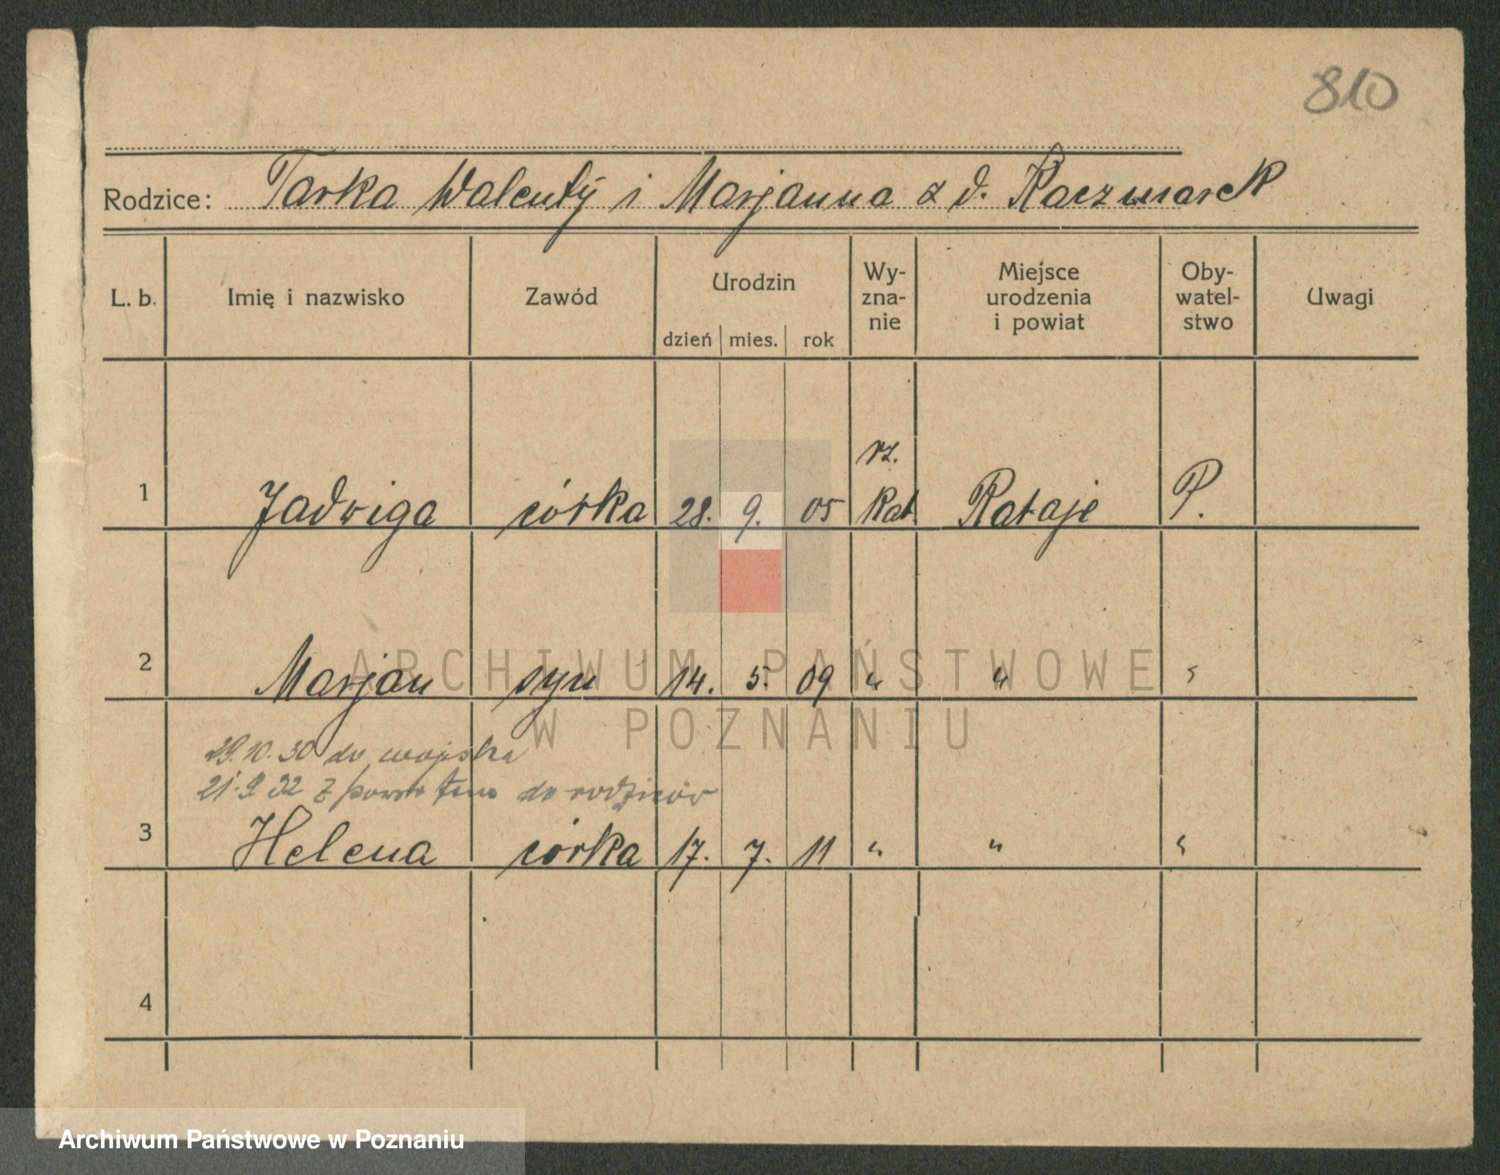 810
Rodzice: Tarka Walenty i Marjanna z d. Kaczmarek
L. b. Imię i nazwisko Zawód Urodzin Wy- Miejsce Oby- Uwagi
zna- urodzenia watel-
nie i powiat stwo
dzień mies. rok
rz.
1 Jadwiga córka 28. 9. 05 Kat. Rataje P.
2 Marjan syn 14. 5. 09 " " "
29.10.30 do wojska
21.9.32 z powrotem do rodziców
3 Helena córka 17. 7. 11 " " "
4
ARCHIWUM PAŃSTWOWE
W POZNANIU
Archiwum Państwowe w Poznaniu